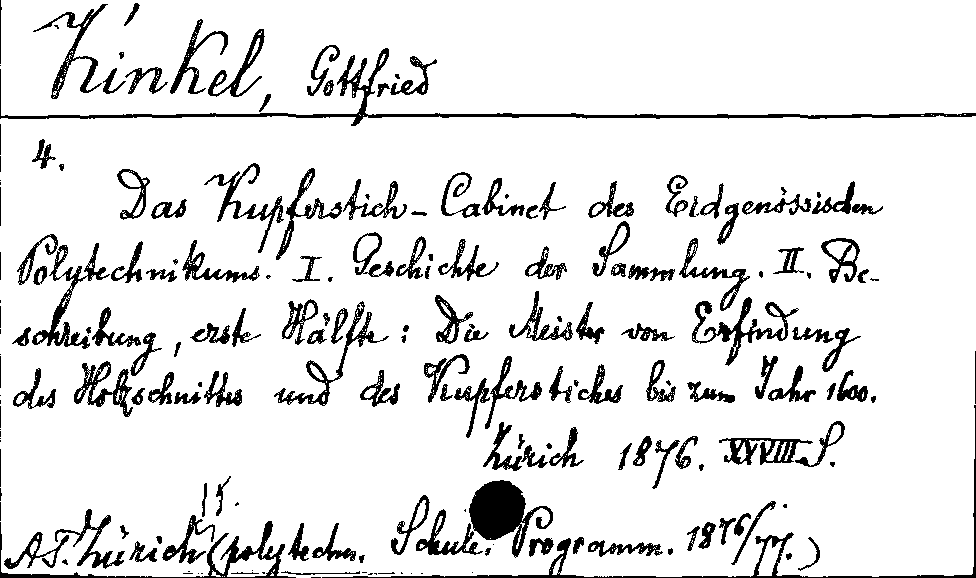 Kinkel, Gottfried
4.
Das Kupferstich-Cabinet des Eidgenössischen
Polytechnikums. I. Geschichte der Sammlung. II. Be-
schreibung, erste Hälfte: Die Meister von Erfindung
des Holzschnittes und des Kupferstiches bis zum Jahr 1600.
Zürich 1876. XXVIII S.
15.
A.T. Zürich (polytechn. Schule. Programm. 1876/77.)